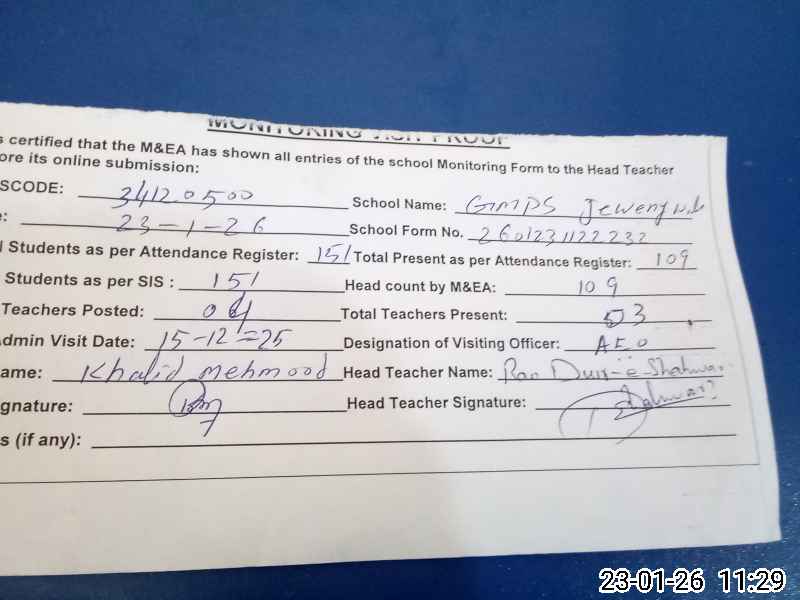 MONITORING VISIT PROOF
s certified that the M&EA has shown all entries of the school Monitoring Form to the Head Teacher
ore its online submission:
SCODE: 34120500 School Name: GMPS
e: 23-1-26 School Form No. 2601231122232
l Students as per Attendance Register: 151 Total Present as per Attendance Register: 109
Students as per SIS : 151 Head count by M&EA: 109
Teachers Posted: 04 Total Teachers Present: 03
dmin Visit Date: 15-12-25 Designation of Visiting Officer: AEO
ame: Khalid mehmood Head Teacher Name:
gnature: Head Teacher Signature:
s (if any):
23-01-26 11:29